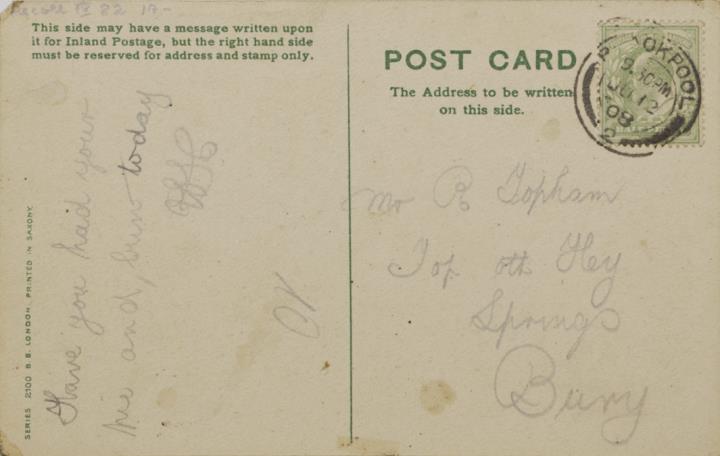 This side may have a message written upon
it for Inland Postage, but the right hand side
must be reserved for address and stamp only.
Have you had your
pie and, bun today
SERIES 2100 B. B. LONDON. PRINTED IN SAXONY.
POST CARD
The Address to be written
on this side.
9.30PM
12
08
2
Mr R Topham
Top oth Hey
Springs
Bury